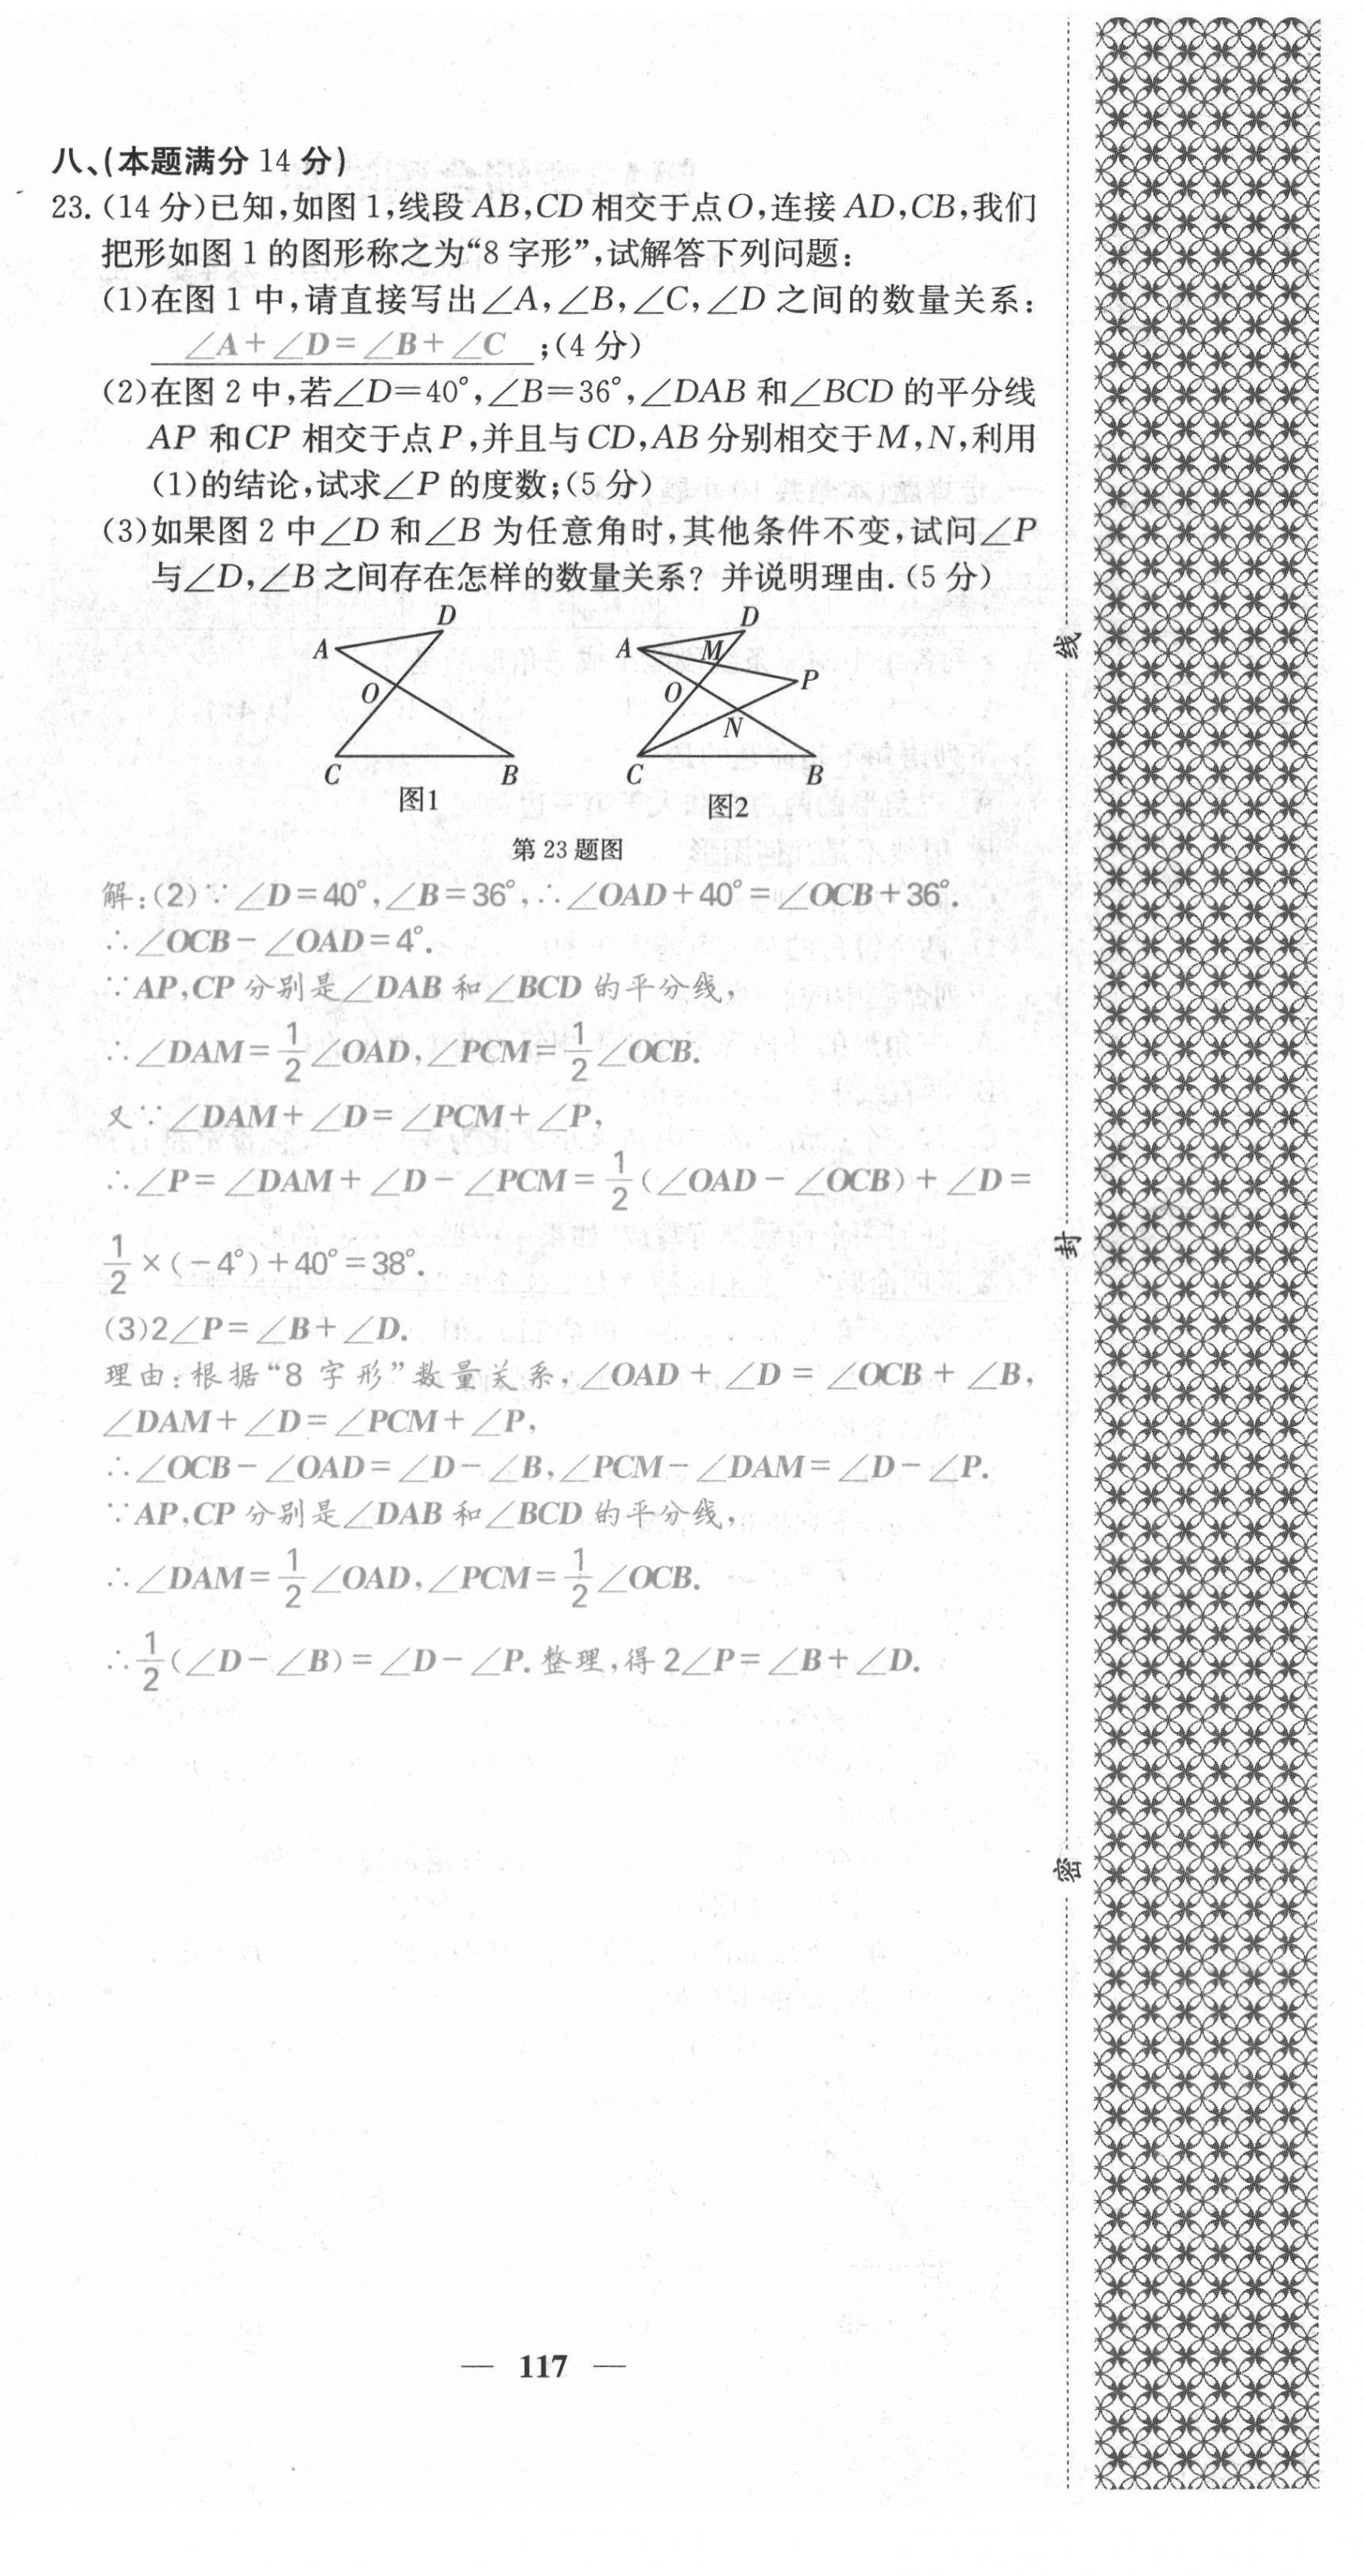 八、(本题满分 14 分)
23. (14 分)已知,如图 1,线段 AB,CD 相交于点O,连接 AD,CB,我们
把形如图 1 的图形称之为“8 字形”,试解答下列问题:
(1)在图 1 中,请直接写出∠A,∠B,∠C,∠D 之间的数量关系:
∠A+∠D=∠B+∠C ;(4 分)
(2)在图 2 中,若∠D=40°,∠B=36°,∠DAB 和∠BCD 的平分线
AP 和CP 相交于点P,并且与 CD,AB 分别相交于M,N,利用
(1)的结论,试求∠P 的度数;(5 分)
(3)如果图 2 中∠D 和∠B 为任意角时,其他条件不变,试问∠P
与∠D,∠B 之间存在怎样的数量关系? 并说明理由. (5 分)
A D O C B
图1
A D M P O N C B
图2
第 23 题图
解:(2)∵∠D=40°,∠B=36°,∴∠OAD+40°=∠OCB+36°.
∴∠OCB-∠OAD=4°.
∵AP,CP 分别是∠DAB 和∠BCD 的平分线,
∴∠DAM=1/2∠OAD,∠PCM=1/2∠OCB.
又∵∠DAM+∠D=∠PCM+∠P,
∴∠P=∠DAM+∠D-∠PCM=1/2(∠OAD-∠OCB)+∠D=
1/2×(-4°)+40°=38°.
(3)2∠P=∠B+∠D.
理由:根据“8 字形”数量关系,∠OAD+∠D=∠OCB+∠B,
∠DAM+∠D=∠PCM+∠P,
∴∠OCB-∠OAD=∠D-∠B,∠PCM-∠DAM=∠D-∠P.
∵AP,CP 分别是∠DAB 和∠BCD 的平分线,
∴∠DAM=1/2∠OAD,∠PCM=1/2∠OCB.
∴1/2(∠D-∠B)=∠D-∠P. 整理,得 2∠P=∠B+∠D.
— 117 —
线
封
密